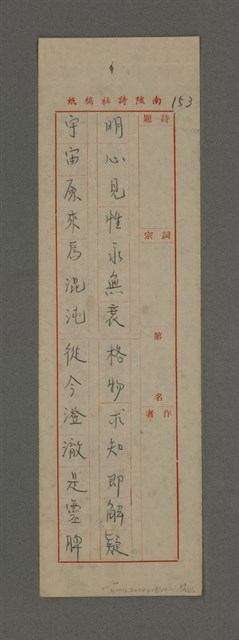 153
南陔詩社稿紙
詩題
詞宗
第 名
作者
明心見性永無衰格物求知即解疑
宇宙原來為混沌從今澄澈是靈脾